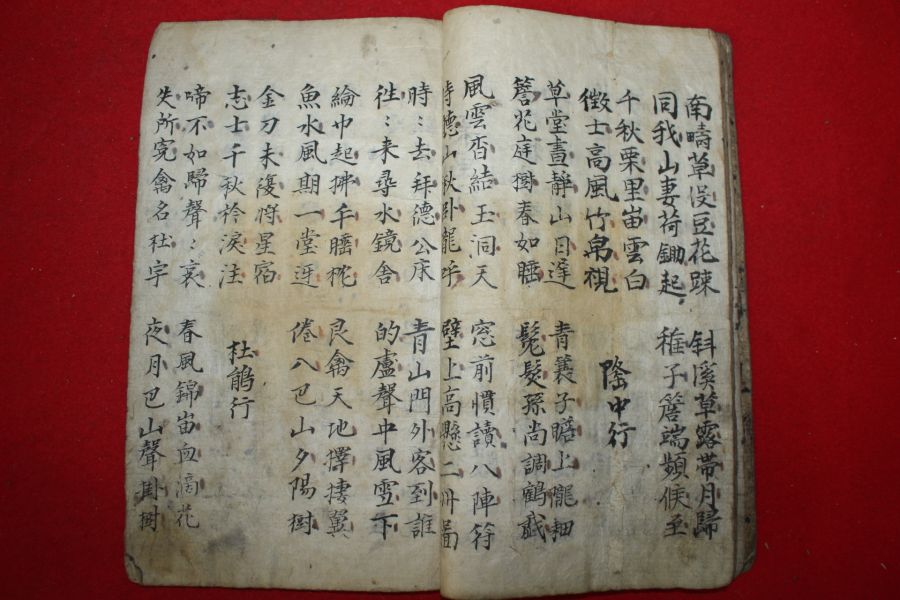 南疇草没豆花疎
斜溪草露帶月歸
同我山妻荷鋤起
稚子簷端頻候至
千秋栗里宙雲白
徵士高風竹帛視
隆中行
草堂晝静山日遲
青蓑子瞻上隴畊
簷花庭樹春如睡
髡髮孫尚調鶴戱
風雲杳結玉洞天
窓前慣讀八陣符
德山秋卧龍乎
壁上高懸二冊啚
時〻去拜德公床
青山門外客到誰
徃〻来尋水鏡舍
的盧聲中風雪下
綸巾起拂午睡枕
良禽天地擇捿翼
魚水風期一堂迓
倦入巴山夕陽樹
金刀未復將星宿
志士千秋衿淚注
杜鵑行
啼不如歸聲〻哀
春風錦宙血滴花
失所寃禽名杜宇
夜月巴山聲掛樹